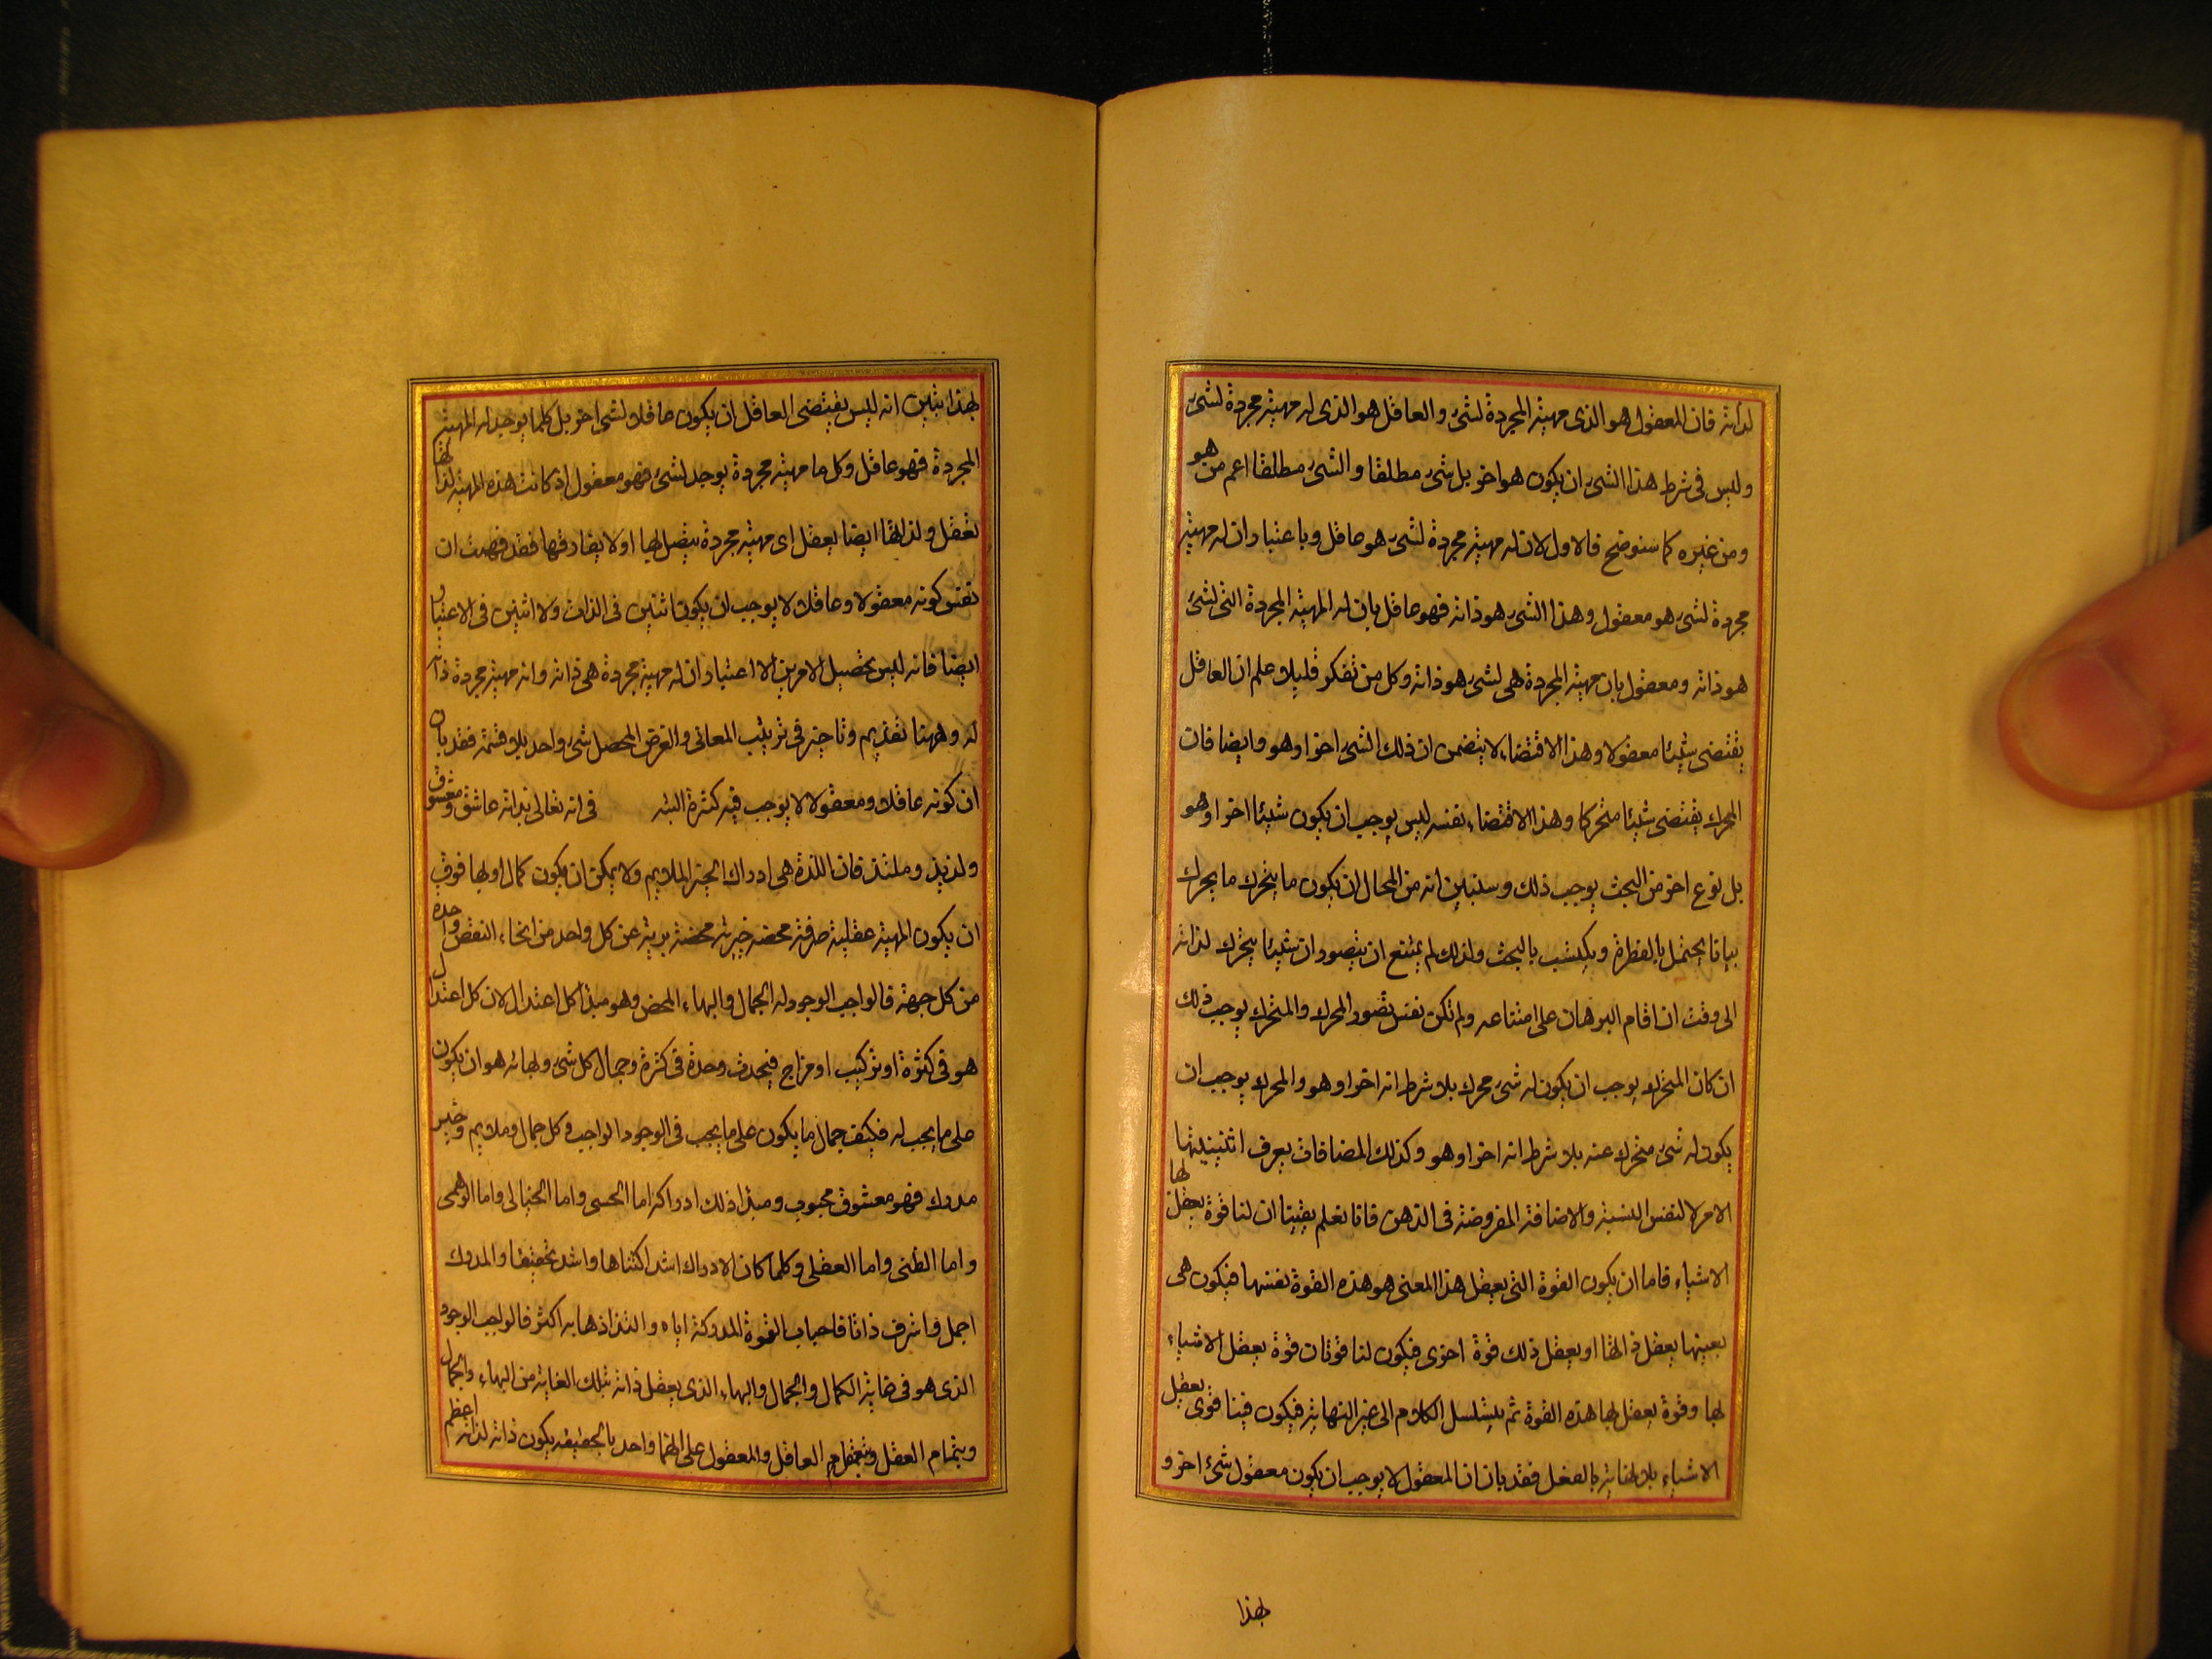 لذاته فان المعقول هو الذى مهيته المجردة لشئ والعاقل هو الذى له مهية مجردة لشئ
وليس فى شرط هذا الشئ ان يكون هو اخر بل شئ مطلقا والشئ مطلقا اعم من هو
ومن غيره كما سنوضح فالاول لان له مهية مجردة لشئ هو عاقل وباعتبار ان له مهية
مجردة لشئ هو معقول وهذا الشئ هو ذاته فهو عاقل بان له المهية المجردة التى لشئ
هو ذاته ومعقول بان مهيته المجردة هى لشئ هو ذاته وكل من تفكر قليلا علم ان العاقل
يقتضى شيئا معقولا وهذا الاقتضاء لا يتضمن ان ذلك الشئ اخر او هو وايضا فان
المحرك يقتضى شيئا متحركا وهذا الاقتضاء نفسه ليس يوجب ان يكون شيئا اخر او هو
بل نوع اخر من البحث يوجب ذلك وسنبين انه من المحال ان يكون ما يتحرك ما يحرك
بيانا يحتمل بالفطرة ويكتسب بالبحث ولذلك لم يمتنع ان يتصور ان شيئا يتحرك لذاته
الى وقت ان اقام البرهان على امتناعه ولم تكن نفس تصور المحرك والمتحرك يوجب ذلك
ان كان المتحرك يوجب ان يكون له شئ محرك بلا شرط انه اخر او هو والمحرك يوجب ان
يكون له شئ متحرك عنه بلا شرط انه اخر او هو وكذلك المضافات يعرف اثنينيتها
الامر لا لنفس النسبة والاضافة المفروضة فى الذهن فانا نعلم يقينا ان لنا قوة يعقل لها
الاشياء فاما ان يكون القوة التى يعقل هذا المعنى هو هذه القوة نفسها فيكون هى
بعينها يعقل ذاتها او يعقل ذلك قوة اخرى فيكون لنا قوتان قوة يعقل الاشياء
لها وقوة يعقل لها هذه القوة ثم يتسلسل الكلام الى غير النهاية فيكون فينا قوى يعقل
الاشياء بلا نهاية بالفعل فقد بان ان المعقول لا يوجب ان يكون معقول شئ اخر و
لهذا
لهذا يتبين انه ليس يقتضى العاقل ان يكون عاقلا لشئ اخر بل كلما يوجد له المهية
المجردة فهو عاقل وكل ما مهية مجردة يوجد لشئ فهو معقول اذ كانت هذه المهية لذاتها
تعقل ولذاتها ايضا يعقل اى مهية مجردة يتصل بها او لا يفارقها فقد فهمت ان
نفس كونه معقولا وعاقلا لا يوجب ان يكون اثنين فى الذات ولا اثنين فى الاعتبار
ايضا فانه ليس تحصيل الامرين الا اعتبار ان له مهية مجردة هى ذاته وانه مهية مجردة ذاته
له وههنا تقديم وتاخير فى ترتيب المعانى والغرض المحصل شئ واحد بلا قسمة فقد بان
ان كونه عاقلا ومعقولا لا يوجب فيه كثرة البتة فى انه تعالى بذاته عاشق ومعشوق
ولذيذ وملتذ فان اللذة هى ادراك الخير الملايم ولا يمكن ان يكون كمال او بها فوق
ان يكون المهية عقلية صرفة محضة خيرية محضة برية عن كل واحد من انحاء النقص واحدة
من كل جهة فالواجب الوجود له الجمال والبهاء المحض وهو مبدا كل اعتدال لان كل اعتدال
هو فى كثرة او تركيب او مزاج فيحدث وحدة فى كثرة وجمال كل شئ وبهائه هو ان يكون
على ما يجب له فكيف جمال ما يكون على ما يجب فى الوجود الواجب وكل جمال وملايم وخير
مدرك فهو معشوق محبوب ومبدا ذلك ادراكه اما الحسى واما الخيالى واما الوهمى
واما الظنى واما العقلى وكلما كان الادراك اشد اكتناها واشد تحقيقا والمدرك
اجمل واشرف ذاتا فاحباب القوة المدركة اياه والتذاذها به اكثر فالواجب الوجود
الذى هو فى غاية الكمال والجمال والبهاء الذى يعقل ذاته بتلك الغاية من البهاء والجمال
وبتمام العقل وبتعقل العاقل والمعقول على انهما واحد بالحقيقة يكون ذاته لذاته اعظم